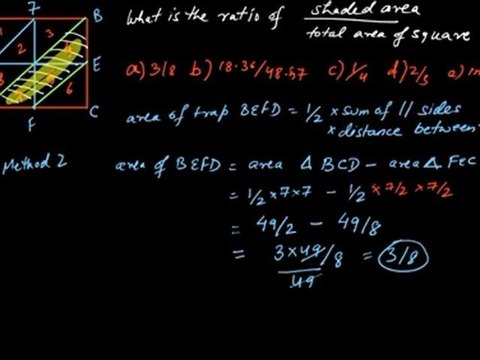 7 B
1 3
2 4
E
8 5
6
F C
What is the ratio of shaded area
total area of square
a) 3/8 b) 18.36/48.57 c) 1/4 d) 2/5 e)
area of trap BEFD = 1/2 × sum of // sides
× distance between
Method 2 area of BEFD = area Δ BCD - area Δ FEC
= 1/2 × 7 × 7 - 1/2 × 7/2 × 7/2
= 49/2 - 49/8
= 3 × 49/8 = 3/8
49